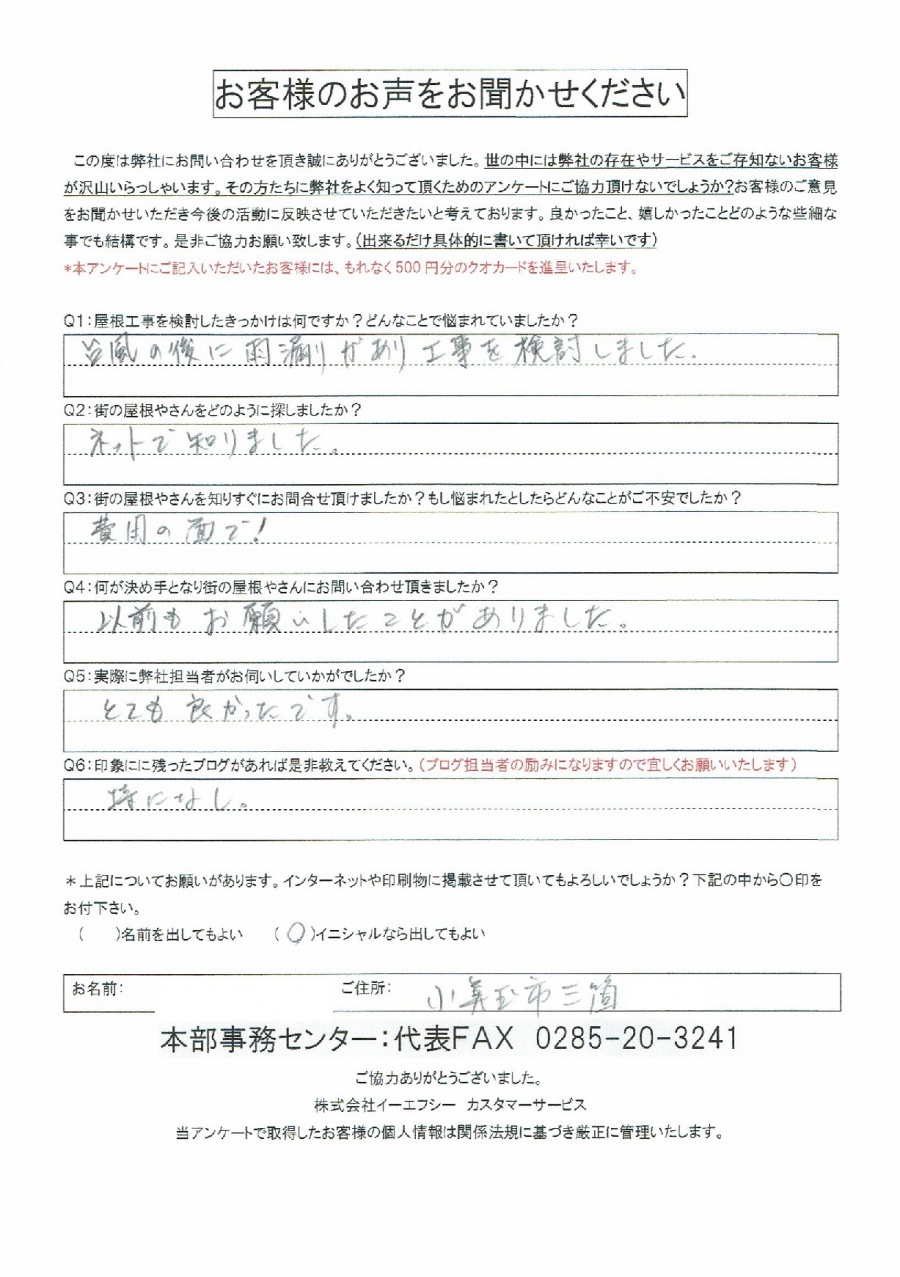 お客様のお声をお聞かせください
この度は弊社にお問い合わせを頂き誠にありがとうございました。世の中には弊社の存在やサービスをご存知ないお客様
が沢山いらっしゃいます。その方たちに弊社をよく知って頂くためのアンケートにご協力頂けないでしょうか？お客様のご意見
をお聞かせいただき今後の活動に反映させていただきたいと考えております。良かったこと、嬉しかったことどのような些細な
事でも結構です。是非ご協力お願い致します。（出来るだけ具体的に書いて頂ければ幸いです）
*本アンケートにご記入いただいたお客様には、もれなく500円分のクオカードを進呈いたします。
Q1:屋根工事を検討したきっかけは何ですか？どんなことで悩まれていましたか？
台風の後に雨漏りがあり工事を検討しました。
Q2:街の屋根やさんをどのように探しましたか？
ネットで知りました。
Q3:街の屋根やさんを知りすぐにお問合せ頂けましたか？もし悩まれたとしたらどんなことがご不安でしたか？
費用の面で!
Q4:何が決め手となり街の屋根やさんにお問い合わせ頂きましたか？
以前もお願いしたことがありました。
Q5:実際に弊社担当者がお伺いしていかがでしたか？
とても良かったです。
Q6:印象にに残ったブログがあれば是非教えてください。（ブログ担当者の励みになりますので宜しくお願いいたします）
特になし。
＊上記についてお願いがあります。インターネットや印刷物に掲載させて頂いてもよろしいでしょうか？下記の中から〇印を
お付下さい。
（　）名前を出してもよい　（〇）イニシャルなら出してもよい
お名前:　ご住所:　小美玉市三箇
本部事務センター：代表FAX 0285-20-3241
ご協力ありがとうございました。
株式会社イーエフシー カスタマーサービス
当アンケートで取得したお客様の個人情報は関係法規に基づき厳正に管理いたします。